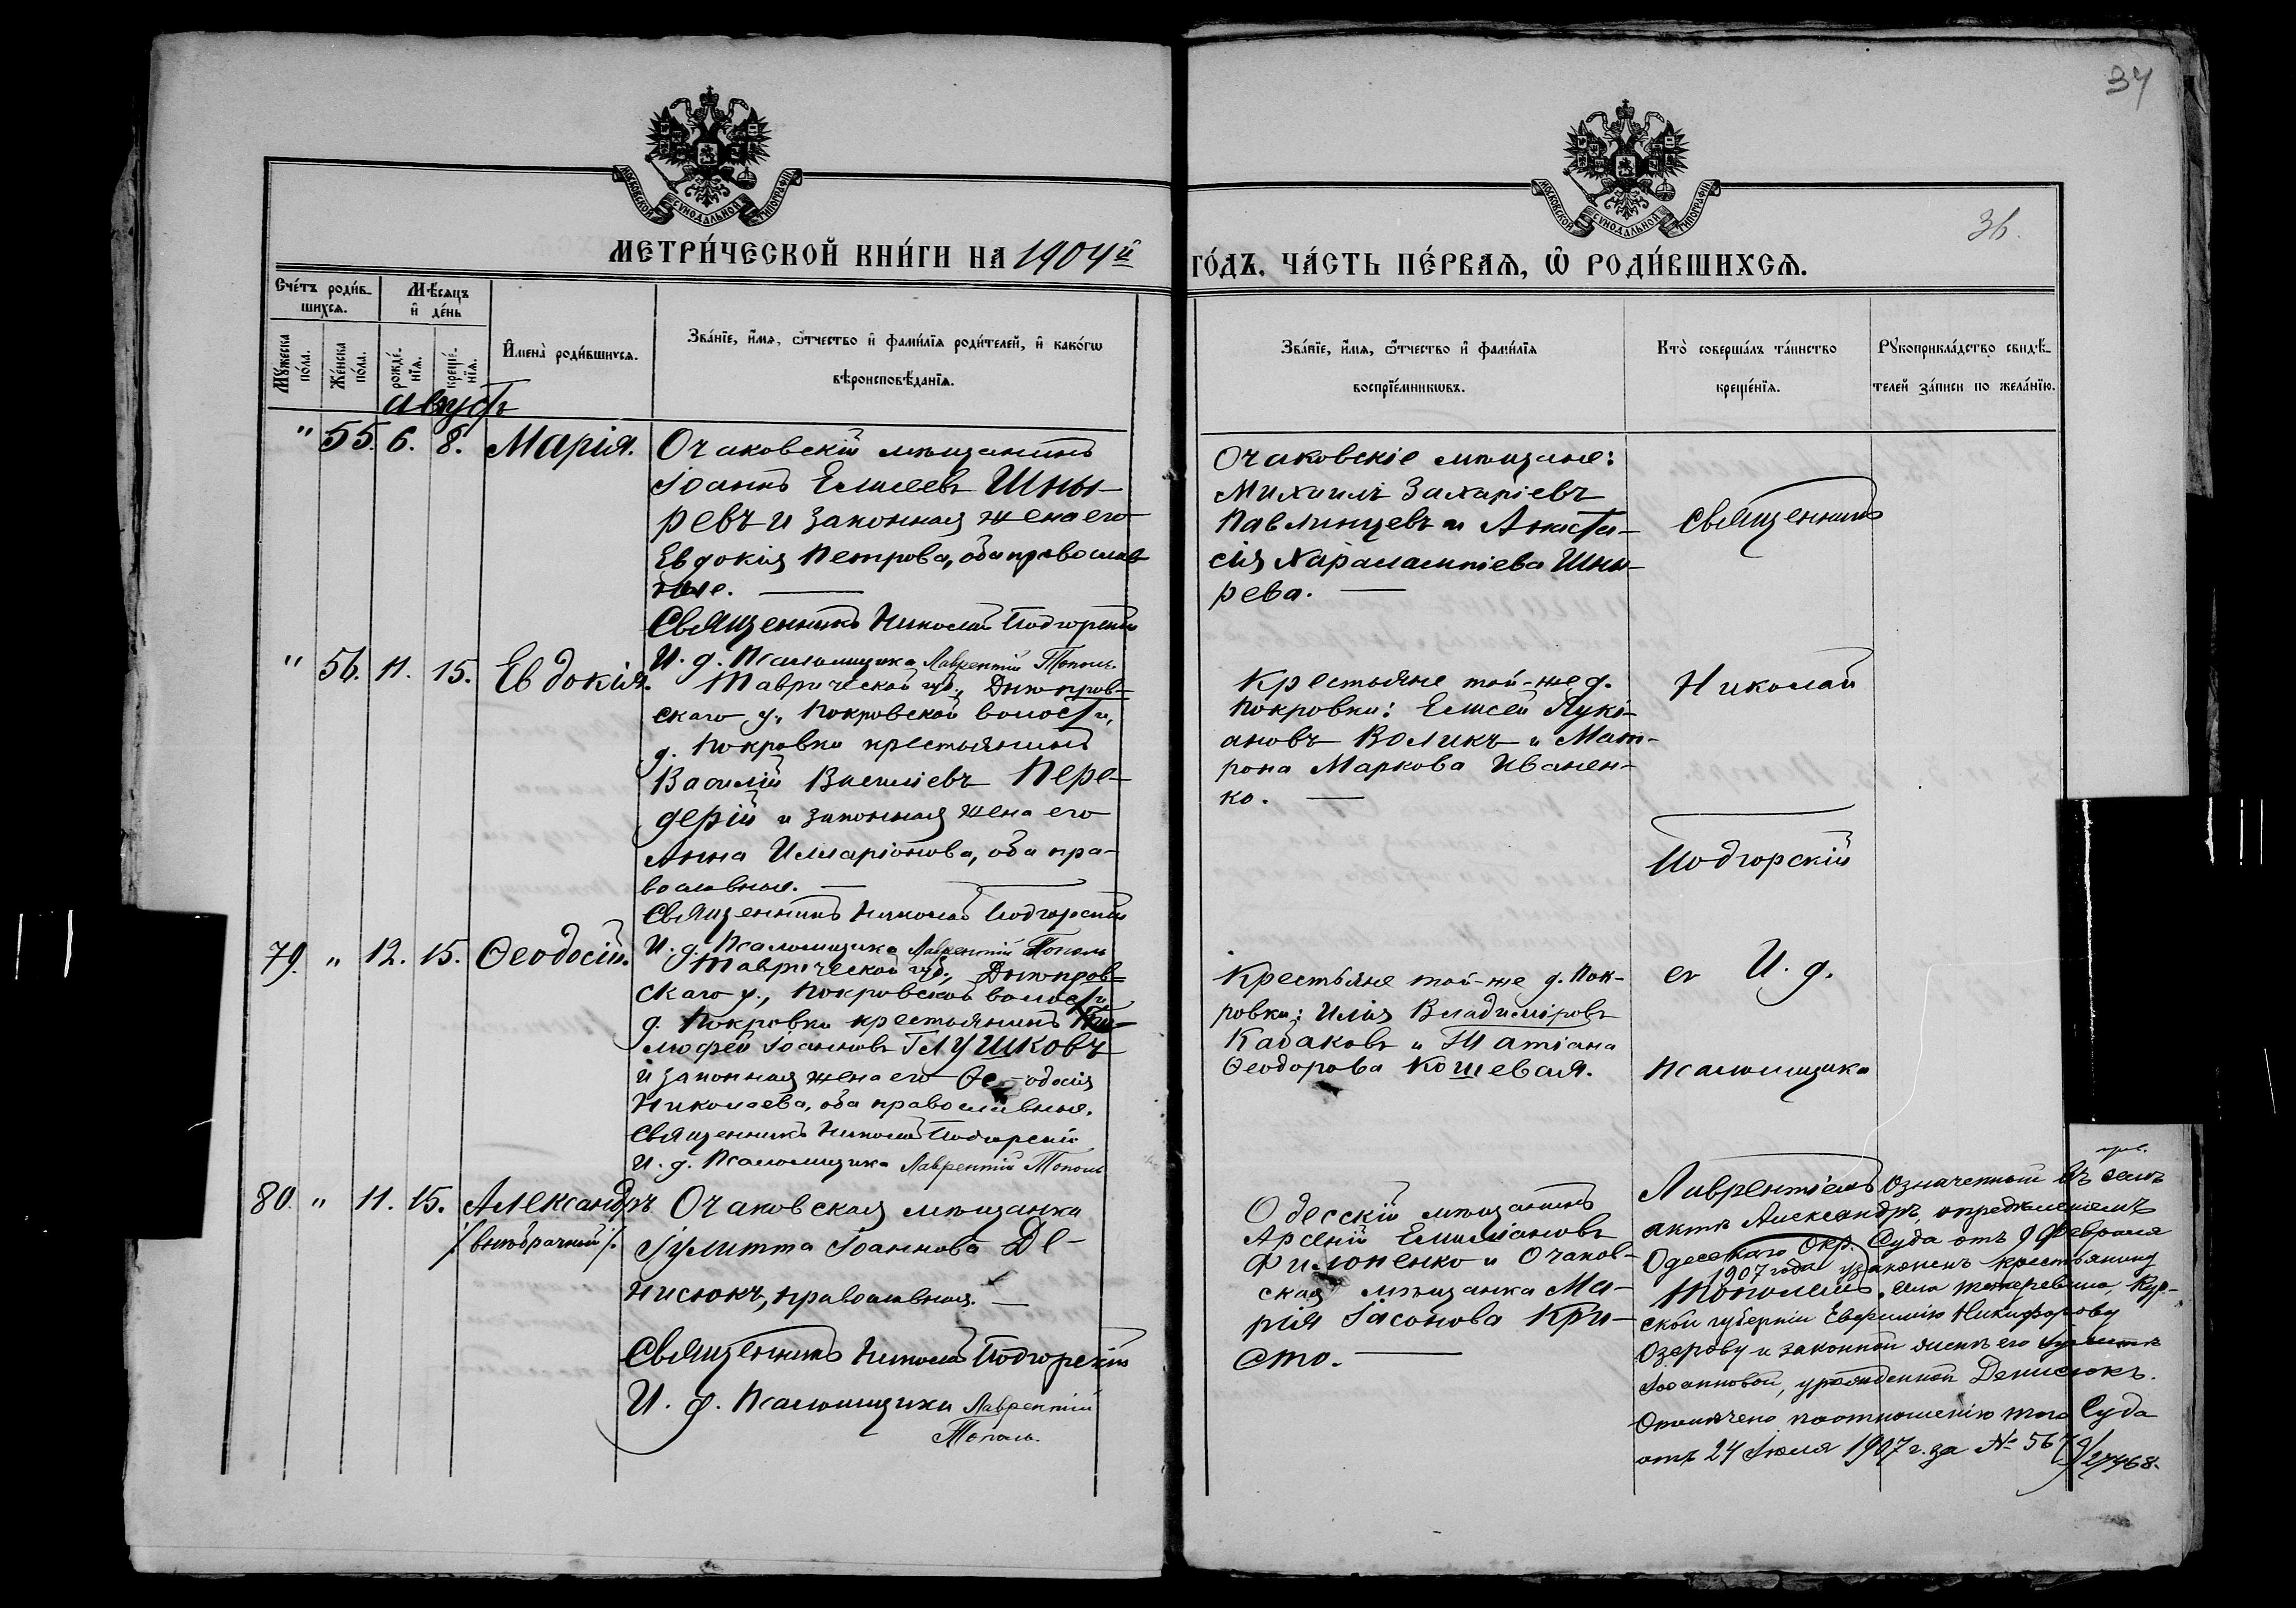 37
36.
МОСКОВСКОЙ СУНОДАЛЬНОЙ ТИПОГРАФІИ
МОСКОВСКОЙ СУНОДАЛЬНОЙ ТИПОГРАФІИ
МЕТРИ́ЧЕСКОЙ КНИ́ГИ НА 1904й
ГО́ДЪ, ЧА́СТЬ ПЕ́РВАѦ, Ѡ҆ РОДИ́ВШИХСѦ.
Сче́тъ роди́в-
шихсѧ.
Мѣ́сѧцъ
и҆ де́нь
Мꙋ́жеска
по́ла.
Же́нска
по́ла.
рожде́-
нїѧ.
креще́-
нїѧ.
И҆мена̀ роди́вшихсѧ.
Зва́нїе, и҆́мѧ, ѻ҆́тчество и҆ фами́лїѧ роди́телей, и҆ како́гѡ
вѣроисповѣ́данїѧ.
Зва́нїе, и҆́мѧ, ѻ҆́тчество и҆ фами́лїѧ
воспрїе́мникѡвъ.
Кто̀ соверша́лъ та́инство
креще́нїѧ.
Рꙋкоприкла́дство свидѣ́-
телей за́писи по жела́нїю.
Августъ
" 55. 6. 8. Марія.
Очаковскій мѣщанинъ
Іоаннъ Елисеевъ Шны-
ревъ и законная жена его
Евдокія Петрова, оба православ-
ные.
Священникъ Николай Подгорскій
И. д. Псаломщика Лаврентій Тополь
Очаковскіе мѣщане:
Михаилъ Захаріевъ
Павлинцевъ и Анаста-
сія Харалампіева Шны-
рева.
" 56. 11. 15. Евдокія.
Таврической губ., Днѣпров-
скаго у., Покровской волости,
д. Покровки крестьянинъ
Василій Василіевъ Пере-
дерій и законная жена его
Анна Илларіонова, оба пра-
вославные.
Священникъ Николай Подгорскій
И. д. Псаломщика Лаврентій Тополь
Крестьяне той-же д.
Покровки: Елисей Лукі-
ановъ Воликъ и Мат-
рона Маркова Иванен-
ко.
79. " 12. 15. Ѳеодосій.
Таврической губ., Днѣпров-
скаго у., Покровской волости
д. Покровки крестьянинъ Ти-
мофей Іоанновъ Глушковъ
и законная жена его Ѳе-одосія
Николаева, оба православные.
Священникъ Николай Подгорскій
И. д. Псаломщика Лаврентій Тополь
Крестьяне той-же д. Пок-
ровки: Илія Владиміровъ
Кабаковъ и Татіана
Ѳеодорова Кошевая.
80. " 11. 15. Александръ
/внѣбрачный/.
Очаковская мѣщанка
Іулитта Іоаннова Де-
нисюкъ, православная.
Священникъ Николай Подгорскій
И. д. Псаломщика Лаврентій
Тополь.
Одесскій мѣщанинъ
Арсеній Емиліановъ
Филоненко и Очаков-
ская мѣщанка Ма-
рія Іасонова Кри-
сто.
Священникъ
Николай
Подгорскій
съ И. д.
Псаломщика
Лаврентіемъ
Тополемъ.
Означенный въ семъ
актѣ Александръ, опредѣленіемъ
Одесскаго Окр. Суда отъ 9 Февраля
1907 года узаконенъ крестьянину
села Кур-
ской губерніи Евфимію Никифорову
Озерову и законной женѣ его
Іоанновой, урожденной Денисюкъ.
Отмѣчено по отношенію того Суда
отъ 24 Іюля 1907 г. за №